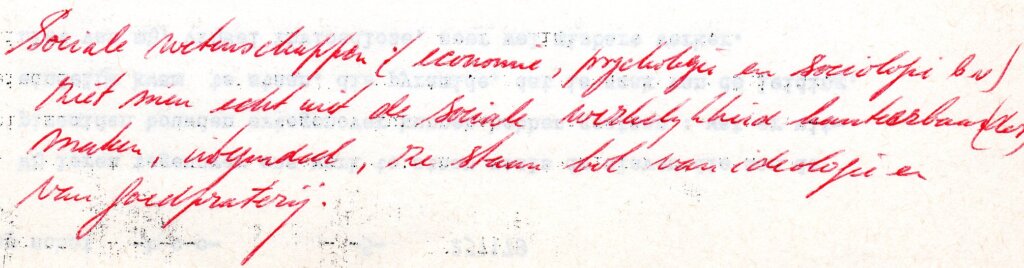 Sociale wetenschappen (economie, psychologie en sociologie bv)
ziet men echt niet de sociale werkelijkheid hanteerbaar(der)
maken, integendeel, ze staan bol van ideologie en
van goedpraterij.